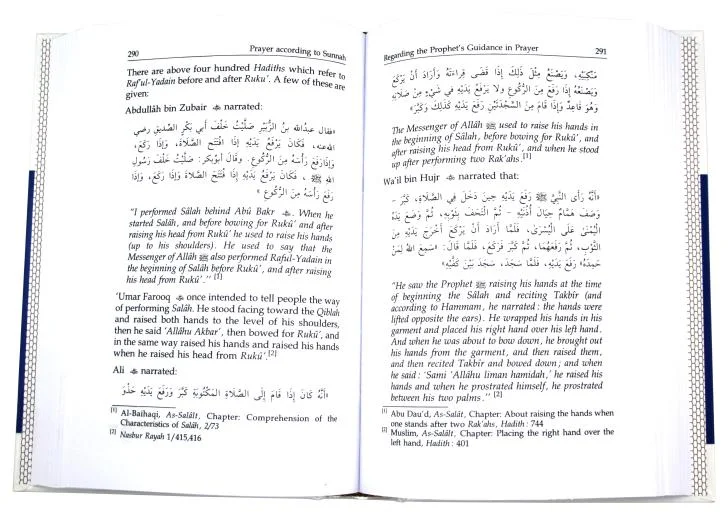 290
Prayer according to Sunnah
There are above four hundred Hadiths which refer to
Raf'ul-Yadain before and after Ruku'. A few of these are
given:
Abdullâh bin Zubair ﷺ narrated:
«فقال عبدالله بن الزُّبَيْرِ صَلَّيْتُ خَلْفَ أَبي بَكْرٍ الصِّدِيقِ رضي
الله عنه، فكانَ يَرْفَعُ يَدَيْهِ إِذَا افْتَتَحَ الصَّلَاةَ، وَإِذَا رَكَعَ،
وَإِذَا رَفَعَ رَأْسَهُ مِنَ الرُّكُوعِ. وقَالَ أبوبكر: صَلَّيْتُ خَلْفَ رَسُولِ
اللهِ ﷺ ، فَكَانَ يَرْفَعُ يَدَيْهِ إِذَا افْتَتَحَ الصَّلَاةَ وَإِذَا رَكَعَ، وَإِذَا
رَفَعَ رَأْسَهُ مِنَ الرُّكُوعِ »
"I performed Sâlah behind Abû Bakr. When he
started Salâh, and before bowing for Rukû' and after
raising his head from Rukû' he used to raise his hands
(up to his shoulders). He used to say that the
Messenger of Allâh ﷺ also performed Raful-Yadain in
the beginning of Salâh before Rukû', and after raising
his head from Rukû'." [1]
'Umar Farooq once intended to tell people the way
of performing Salâh. He stood facing toward the Qiblah
and raised both hands to the level of his shoulders,
then he said 'Allâhu Akbar', then bowed for Rukû', and
in the same way raised his hands and raised his hands
when he raised his head from Rukû'.[2]
Ali narrated:
«أنَّهُ كَانَ إِذَا قَامَ إِلَى الصَّلَاةِ المَكْتُوبَةِ كَبَّرَ وَرَفَعَ يَدَيْهِ حَذْوَ
[1] Al-Baihaqi, As-Salâlt, Chapter: Comprehension of the
Characteristics of Salâh, 2/73
[2] Nasbur Rayah 1/415,416
Regarding the Prophet's Guidance in Prayer
291
مَنْكِبَيْهِ، وَيَصْنَعُ مِثْلَ ذَلِكَ إِذَا قَضَى قِرَاءَتَهُ وَأَرَادَ أَنْ يَرْكَعَ
وَيَصْنَعُهُ إِذَا رَفَعَ مِنَ الرُّكُوعِ وَلَا يَرْفَعُ يَدَيْهِ فِي شَيْءٍ مِنْ صَلَاتِهِ
وَهُوَ قَاعِدٌ وَإِذَا قَامَ مِنَ السَّجْدَتَيْنِ رَفَعَ يَدَيْهِ كَذَلِكَ وَكَبَّرَ»
The Messenger of Allâh ﷺ used to raise his hands in
the beginning of Salâh, before bowing for Rukû', and
after raising his head from Rukû', and when he stood
up after performing two Rak'ahs.[1]
Wa'il bin Hujr narrated that:
«أَنَّهُ رَأَى النَّبِيَّ ﷺ رَفَعَ يَدَيْهِ حِينَ دَخَلَ فِي الصَّلَاةِ، كَبَّرَ -
وَصَفَ هَمَّامٌ حِيَالَ أُذُنَيْهِ - ثُمَّ الْتَحَفَ بِثَوْبِهِ، ثُمَّ وَضَعَ يَدَهُ
الْيُمْنَى عَلَى الْيُسْرَى، فَلَمَّا أَرَادَ أَنْ يَرْكَعَ أَخْرَجَ يَدَيْهِ مِنَ
الثَّوْبِ، ثُمَّ رَفَعَهُمَا، ثُمَّ كَبَّرَ فَرَكَعَ، فَلَمَّا قَالَ: «سَمِعَ اللهُ لِمَنْ
حَمِدَهُ» رَفَعَ يَدَيْهِ، فَلَمَّا سَجَدَ، سَجَدَ بَيْنَ كَفَّيْهِ»
"He saw the Prophet ﷺ raising his hands at the time
of beginning the Sâlah and reciting Takbîr (and
according to Hammam, he narrated: the hands were
lifted opposite the ears). He wrapped his hands in his
garment and placed his right hand over his left hand.
And when he was about to bow down, he brought out
his hands from the garment, and then raised them,
and then recited Takbîr and bowed down; and when
he said: 'Sami 'Allâhu liman hamidah,' he raised his
hands and when he prostrated himself, he prostrated
between his two palms." [2]
[1] Abu Dau'd, As-Salât, Chapter: About raising the hands when
one stands after two Rak'ahs, Hadith: 744
[2] Muslim, As-Salâlt, Chapter: Placing the right hand over the
left hand, Hadith: 401